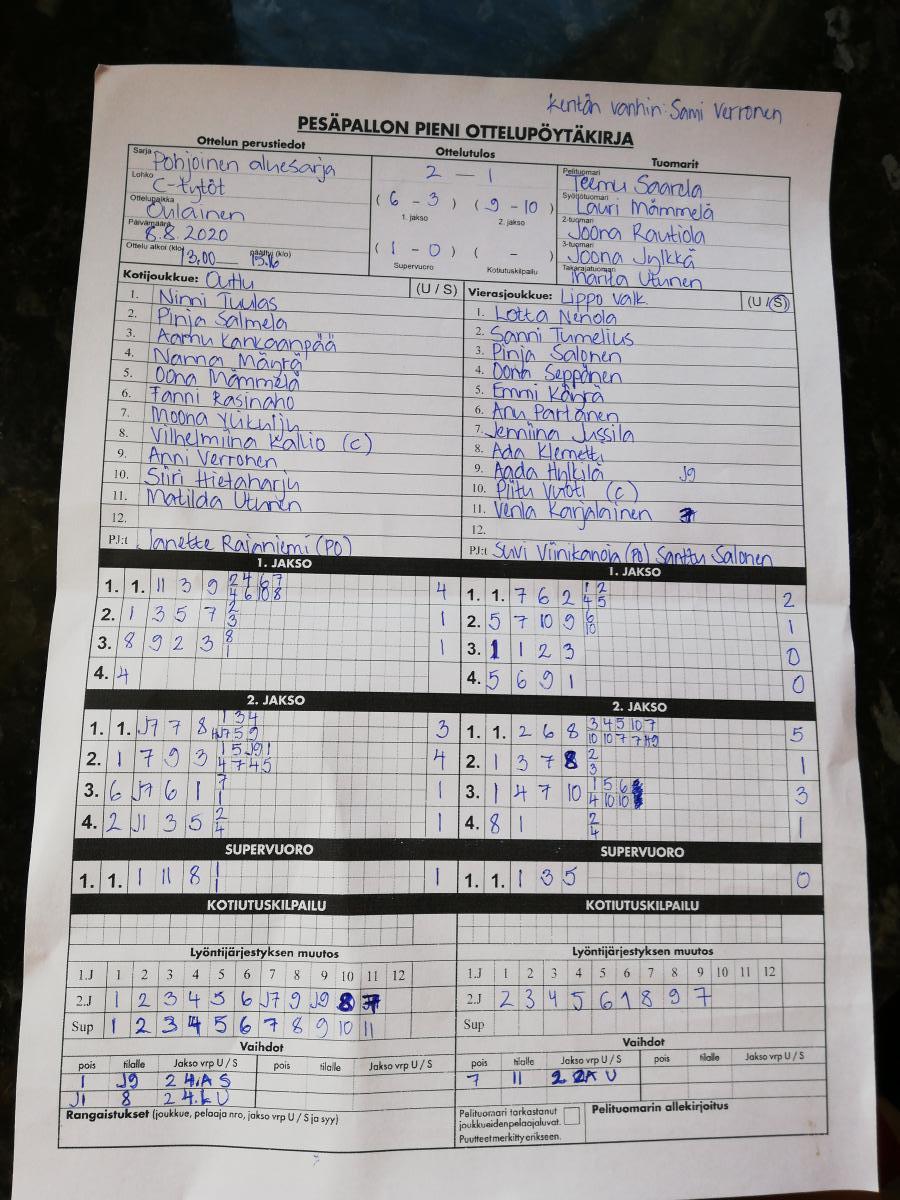 Kentän vanhin: Sami Verronen
PESÄPALLON PIENI OTTELUPÖYTÄKIRJA
Ottelun perustiedot
Sarja Pohjoinen aluesarja
Lohko C-tytöt
Ottelupaikka Oulainen
Päivämäärä 8.8.2020
Ottelu alkoi (klo) 13.00 päättyi (klo) 15.16
Ottelutulos
2 - 1
(6 - 3) (9 - 10)
1. jakso 2. jakso
(1 - 0) ( - )
Supervuoro Kotiutuskilpailu
Tuomarit
Pelituomari Teemu Saarela
Syöttötuomari Lauri Mämmelä
2-tuomari Joona Rautiola
3-tuomari Joona Jylkkä
Takarajatuomari Marita Utunen
Kotijoukkue: Outtu (U / S)
1. Ninni Tuulas
2. Pinja Salmela
3. Aamu Kankaanpää
4. Nanna Mäyrä
5. Oona Mämmelä
6. Fanni Rasinaho
7. Moona Ylikulju
8. Vilhelmiina Kallio (C)
9. Anni Verronen
10. Siiri Hietaharju
11. Matilda Utunen
12.
PJ:t Janette Rajaniemi (PO)
Vierasjoukkue: Lippo Valk. (U / S)
1. Lotta Nenola
2. Sanni Tumelius
3. Pinja Salonen
4. Oona Seppänen
5. Emmi Käyrä
6. Anu Partanen
7. Jenniina Jussila
8. Ada Klemetti
9. Aada Hylkilä J9
10. Piitu Vuoti (C)
11. Venla Karjalainen
12.
PJ:t Suvi Viinikanoja (PO) Santtu Salonen
1. JAKSO
1. 1. 11 3 9 2 4 6 7 4
4 6 10 8
2. 1 3 5 7 2 1
3
3. 8 9 2 3 8 1
1
4. 4
1. JAKSO
1. 1. 7 6 2 1 2 2
4 5
2. 5 7 10 9 6 1
10
3. 1 1 2 3 0
4. 5 6 9 1 0
2. JAKSO
1. 1. J7 7 8 1 3 4 3
4 J7 5 9
2. 1 7 9 3 1 5 J9 1 4
4 7 4 5
3. 6 J7 6 1 7 1
1
4. 2 J1 3 5 2 1
4
2. JAKSO
1. 1. 2 6 8 3 4 5 10 7 5
10 10 7 7
2. 1 3 7 8 2 1
3
3. 1 4 7 10 1 5 6 3
4 10 10
4. 8 1 2 1
4
SUPERVUORO
1. 1. 1 11 8 1 1
1
SUPERVUORO
1. 1. 1 3 5 0
KOTIUTUSKILPAILU
KOTIUTUSKILPAILU
Lyöntijärjestyksen muutos
1.J 1 2 3 4 5 6 7 8 9 10 11 12
2.J 1 2 3 4 5 6 J7 9 J9 8
Sup 1 2 3 4 5 6 7 8 9 10 11
Lyöntijärjestyksen muutos
1.J 1 2 3 4 5 6 7 8 9 10 11 12
2.J 2 3 4 5 6 1 8 9 7
Sup
Vaihdot
pois tilalle Jakso vrp U / S pois tilalle Jakso vrp U / S
1 J9 2 4.A S
J1 8 2 4.L U
Vaihdot
pois tilalle Jakso vrp U / S pois tilalle Jakso vrp U / S
7 11 2 2A U
Rangaistukset (joukkue, pelaaja nro, jakso vrp U / S ja syy)
Pelituomari tarkastanut
joukkueiden pelaajaluvat.
Puutteet merkitty erikseen.
Pelituomarin allekirjoitus